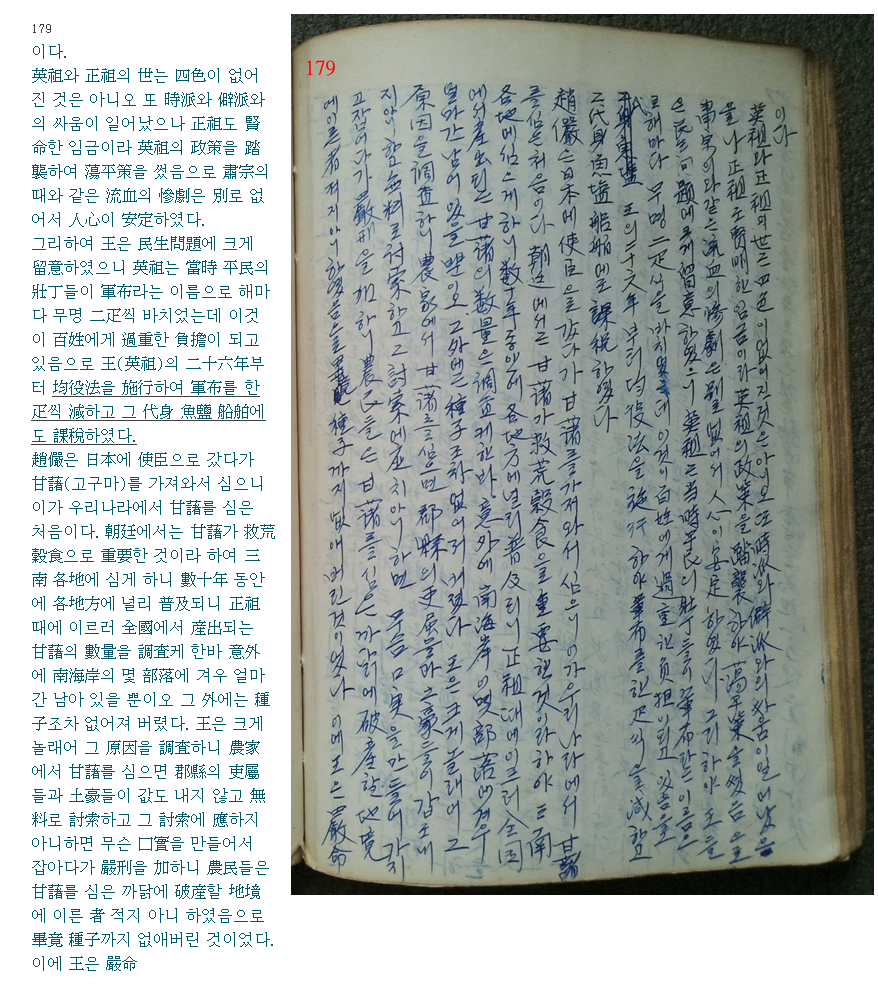 179
이다.
英祖와 正祖의 世는 四色이 없어
진 것은 아니오 또 時派와 僻派와
의 싸움이 일어났으나 正祖도 賢
命한 임금이라 英祖의 政策을 踏
襲하여 蕩平策을 썼음으로 肅宗의
때와 같은 流血의 慘劇은 別로 없
어서 人心이 安定하였다.
그리하여 王은 民生問題에 크게
留意하였으니 英祖는 當時 平民의
壯丁들이 軍布라는 이름으로 해마
다 무명 二疋씩 바치었는데 이것
이 百姓에게 過重한 負擔이 되고
있음으로 王(英祖)의 二十六年부
터 均役法을 施行하여 軍布를 한
疋씩 減하고 그 代身 魚鹽 船舶에
도 課稅하였다.
趙儼은 日本에 使臣으로 갔다가
甘藷(고구마)를 가져와서 심으니
이가 우리나라에서 甘藷를 심은
처음이다. 朝廷에서는 甘藷가 救荒
穀食으로 重要한 것이라 하여 三
南 各地에 심게 하니 數十年 동안
에 各地方에 널리 普及되니 正祖
때에 이르러 全國에서 産出되는
甘藷의 數量을 調査케 한바 意外
에 南海岸의 몇 部落에 겨우 얼마
간 남아 있을 뿐이오 그 外에는 種
子조차 없어져 버렸다. 王은 크게
놀래어 그 原因을 調査하니 農家
에서 甘藷를 심으면 郡縣의 吏屬
들과 土豪들이 값도 내지 않고 無
料로 討索하고 그 討索에 應하지
아니하면 무슨 口實을 만들어서
잡아다가 嚴刑을 加하니 農民들은
甘藷를 심은 까닭에 破産할 地境
에 이른 者 적지 아니 하였음으로
畢竟 種子까지 없애버린 것이었다.
이에 王은 嚴命
179
이다
英祖와 正祖의 世는 四色이 없어진것은 아니오 또 時派와 僻派와의 싸움이 일어났
을나 正祖도 賢明한 임금이라 英祖의 政策을 踏襲하야 蕩平策을 썼음으로
肅宗의 때와같은 流血의 慘劇은 別로 없어서 人心이 安定하였다 그리하야 王을
은 民生問題에 크게 留意하였으니 英祖는 当時平民의 壯丁들이 軍布라는 이름으
로 해마다 무명 二疋식을 바치였는데 이것이 百姓에게 過重한 負担이되고 있음을
王의 二十六年부터 均役法을 施行하야 軍布를 한疋식을 減하고
그代身 魚塩船舶에도 課税하였다
趙儼은 日本에 使臣을 갔다가 甘藷를 가져와서 심으니 이가 우리나라에서 甘藷
를 심은 처음이다 朝廷에서는 甘藷가 救荒穀食을 重要한것이라하야 三南
各地에 심으게하니 数十年동안에 各地方에 널리 普及되니 正祖때에 이르러 全国
에서 産出되는 甘藷의 数量은 調査케한바 意外에 南海岸의 몇部落에 겨우
얼마간 남어 있을뿐이오 그外에는 種子조차 없어저 버렸다 王은 크게 놀래어 그
原因을 調査하니 農家에서 甘藷를 심으면 郡縣의 吏属들과 土豪들이 갑도 내
지않고 無料로 討索하고 그 討索에 応치 아니하면 무슨 口実을 만들어가지
고 잡어다가 嚴刑을 加하니 農民들은 甘藷를 심은 까닭에 破産할 地境
에 이르는 者 적지 아니하였음으로 畢竟 種子까지 없애버린것이었다 이에 王은 嚴命